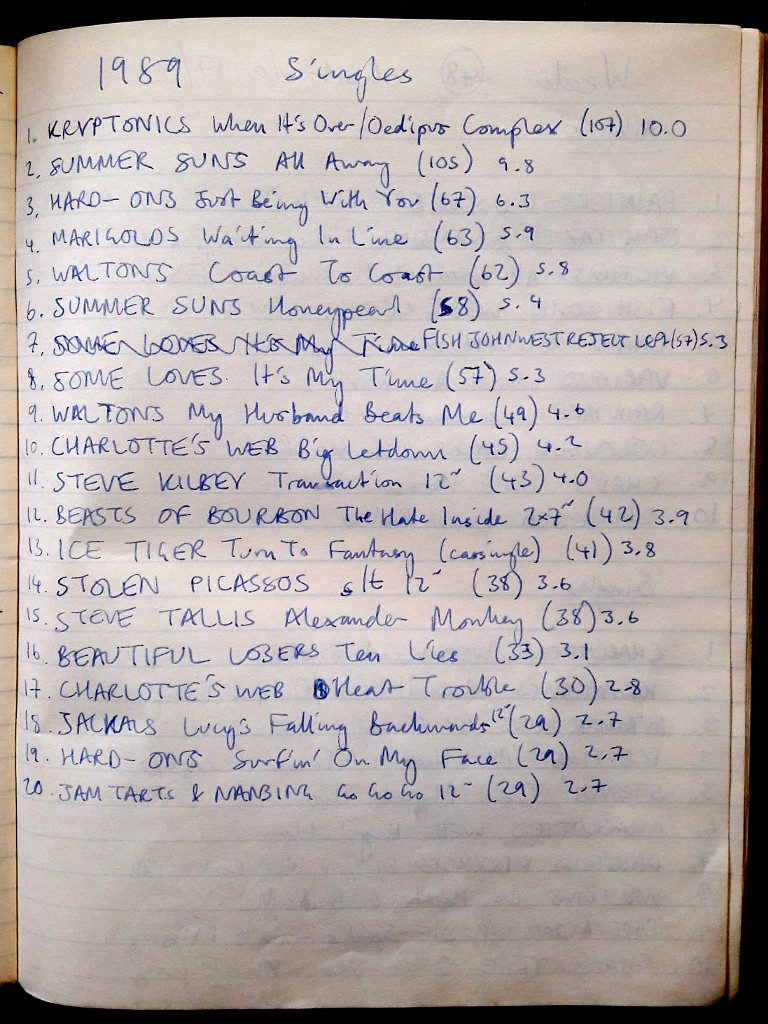 1989 Singles
1. KRYPTONICS When It's Over/Oedipus Complex (107) 10.0
2. SUMMER SUNS All Away (105) 9.8
3. HARD-ONS Just Being With You (67) 6.3
4. MARIGOLDS Waiting In Line (63) 5.9
5. WALTONS Coast To Coast (62) 5.8
6. SUMMER SUNS Honeypearl (58) 5.4
7. SOME LOVES It's My Time FISH JOHN WEST REJECT Left (57) 5.3
8. SOME LOVES. It's My Time (57) 5.3
9. WALTONS My Husband Beats Me (49) 4.6
10. CHARLOTTE'S WEB Big Letdown (45) 4.2
11. STEVE KILBEY Transaction 12" (43) 4.0
12. BEASTS OF BOURBON The Hate Inside 2x7" (42) 3.9
13. ICE TIGER Turn To Fantasy (cassingle) (41) 3.8
14. STOLEN PICASSOS s/t 12" (38) 3.6
15. STEVE TALLIS Alexander Monkey (38) 3.6
16. BEAUTIFUL LOSERS Ten Lies (33) 3.1
17. CHARLOTTE'S WEB Heat Trouble (30) 2.8
18. JACKALS Lucy's Falling Backwards 12" (29) 2.7
19. HARD-ONS Surfin' On My Face (29) 2.7
20. JAM TARTS & NANSING Go Go Go 12" (29) 2.7